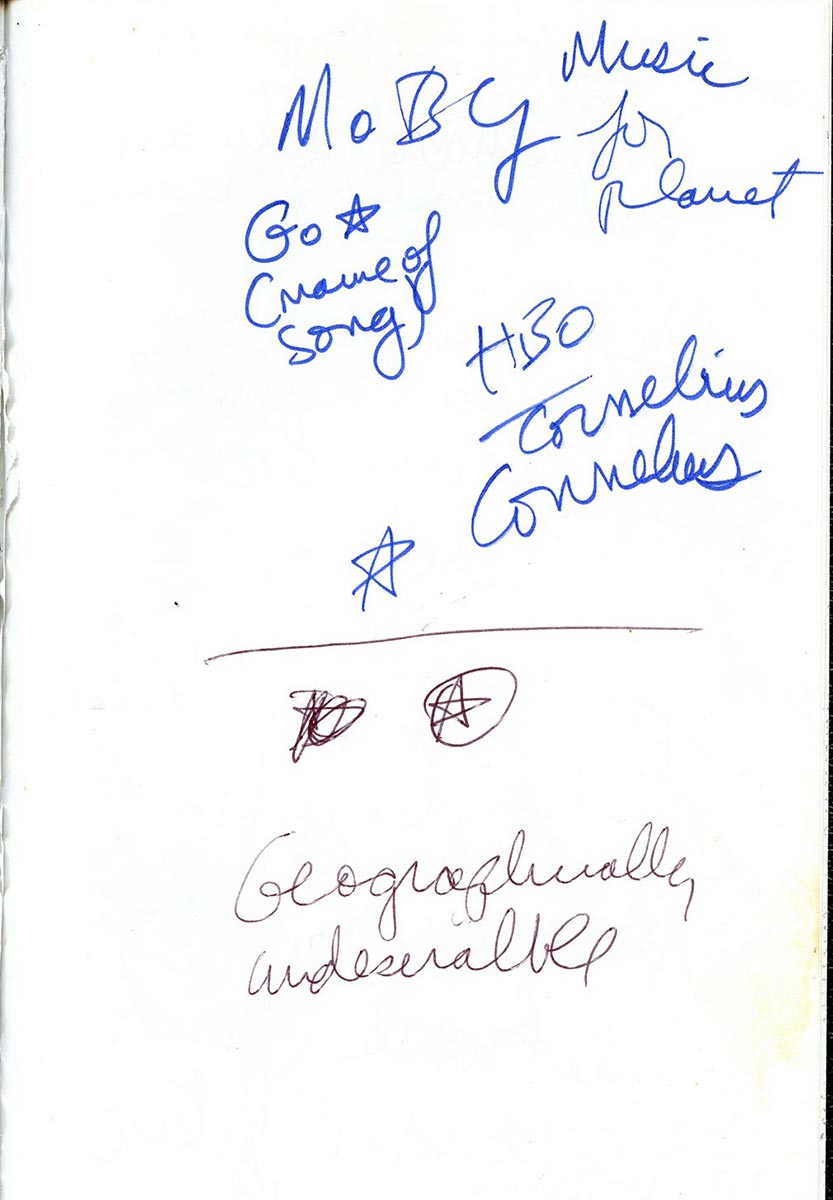 MoBy
Music
for
planet
Go ☆
(name of
song)
HBO
Cornelius
Cornelius
☆
☆
Geographically
undesirable